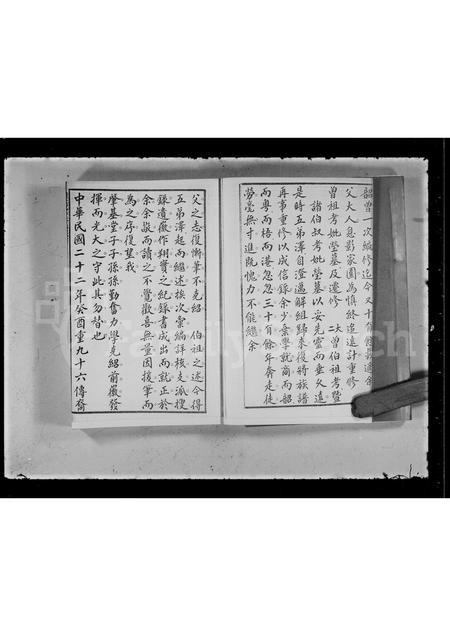 韶曾一次編修迄今又十有餘載適余
父大人息影家園為慎終追遠計重修
曾祖考妣塋墓及遷修 太曾伯祖考暨
諸伯叔考妣塋墓以妥先靈而垂久遠
是時五弟澤自澄邁解組歸來復將族譜
再事重修以成信錄余少棄學就商而韶
而粵而梧而港忽忽三十有餘年奔走徒
勞毫無寸進既愧力不能繼余
父之志復慚筆不克紹 伯祖之迷今得
五弟澤起而繼述挨次彙編詳核支派搜
錄遺徽作翔實之紀錄書成出而就正於
余余敬而讀之不覺歡喜無量因援筆而
為之序復望我
肇基堂子子孫孫勤奮力學克紹前徽發
揮而光大之守此具勿替也
中華民國二十二年癸酉重九十六傳裔